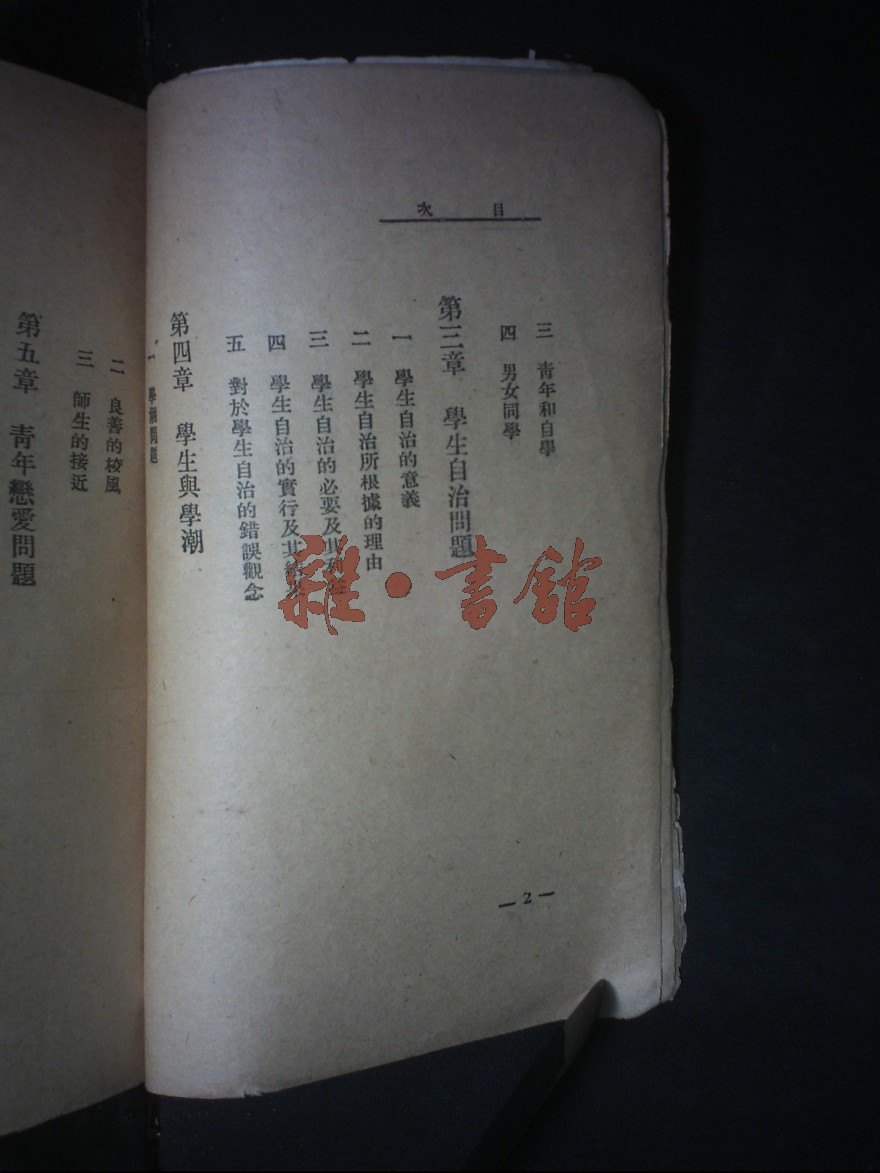 目次
三 青年和自學
四 男女同學
第三章 學生自治問題
一 學生自治的意義
二 學生自治所根據的理由
三 學生自治的必要及其
四 學生自治的實行及其
五 對於學生自治的錯誤觀念
第四章 學生與學潮
一 學潮問題
二 良善的校風
三 師生的接近
第五章 青年戀愛問題
— 2 —
雜·書館